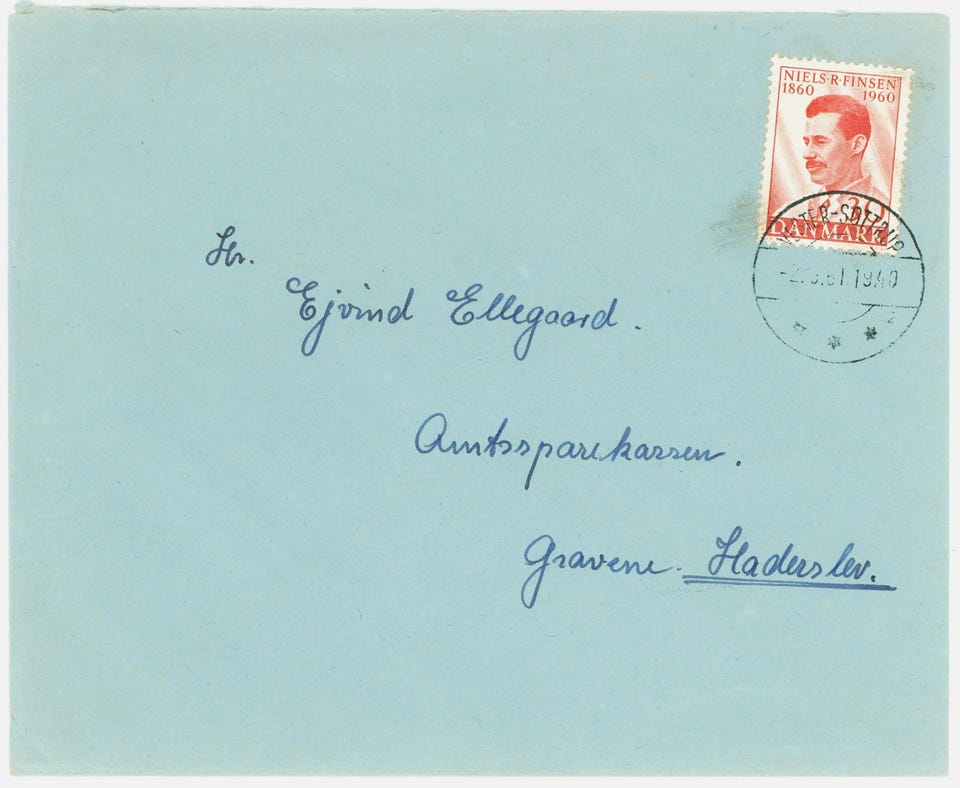 NIELS·R·FINSEN
1860 1960
30
DANMARK
VESTER-SOTTRUP
1940
2
Hr.
Ejvind Ellegaard.
Amtssparekassen.
Gravene. Haderslev.